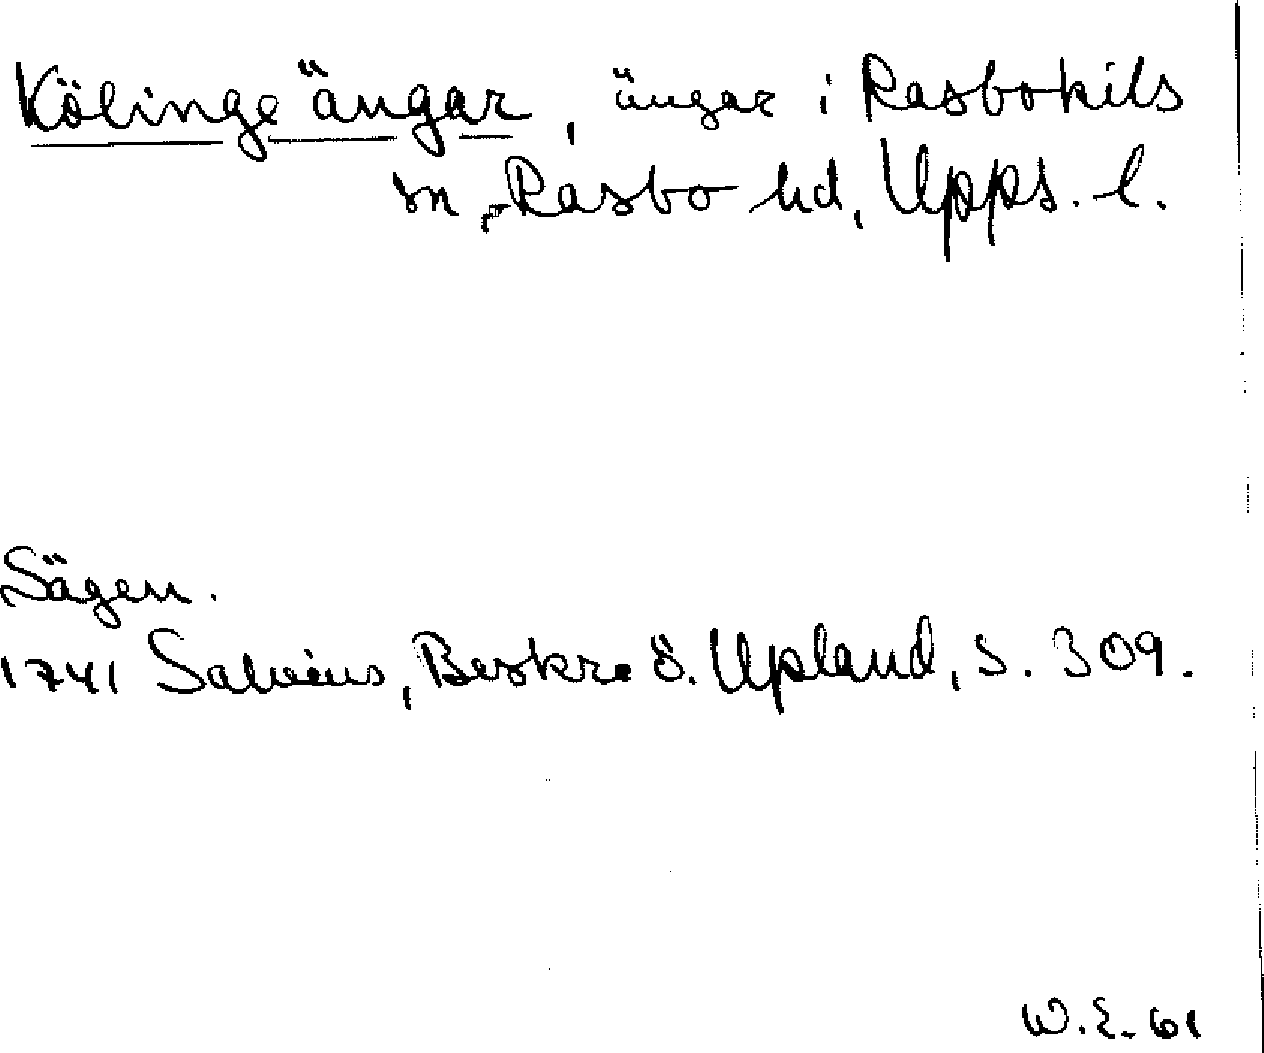 Kölinge ängar, ängar i Rasbokils
sn, Rasbo hd, Upps. l.
Sägen.
1741 Salvius, Beskr. ö. Upland, s. 309.
W.E. 61